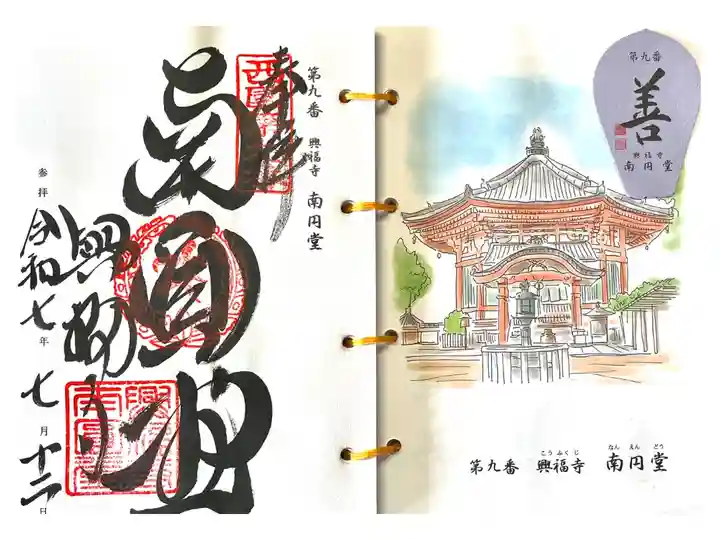 第九番 興福寺 南円堂
奉拝
南圓堂
興福寺
参拝 令和七年 七月 十二日
第九番
善
興福寺
南円堂
こうふくじ なんえんどう
第九番 興福寺 南円堂